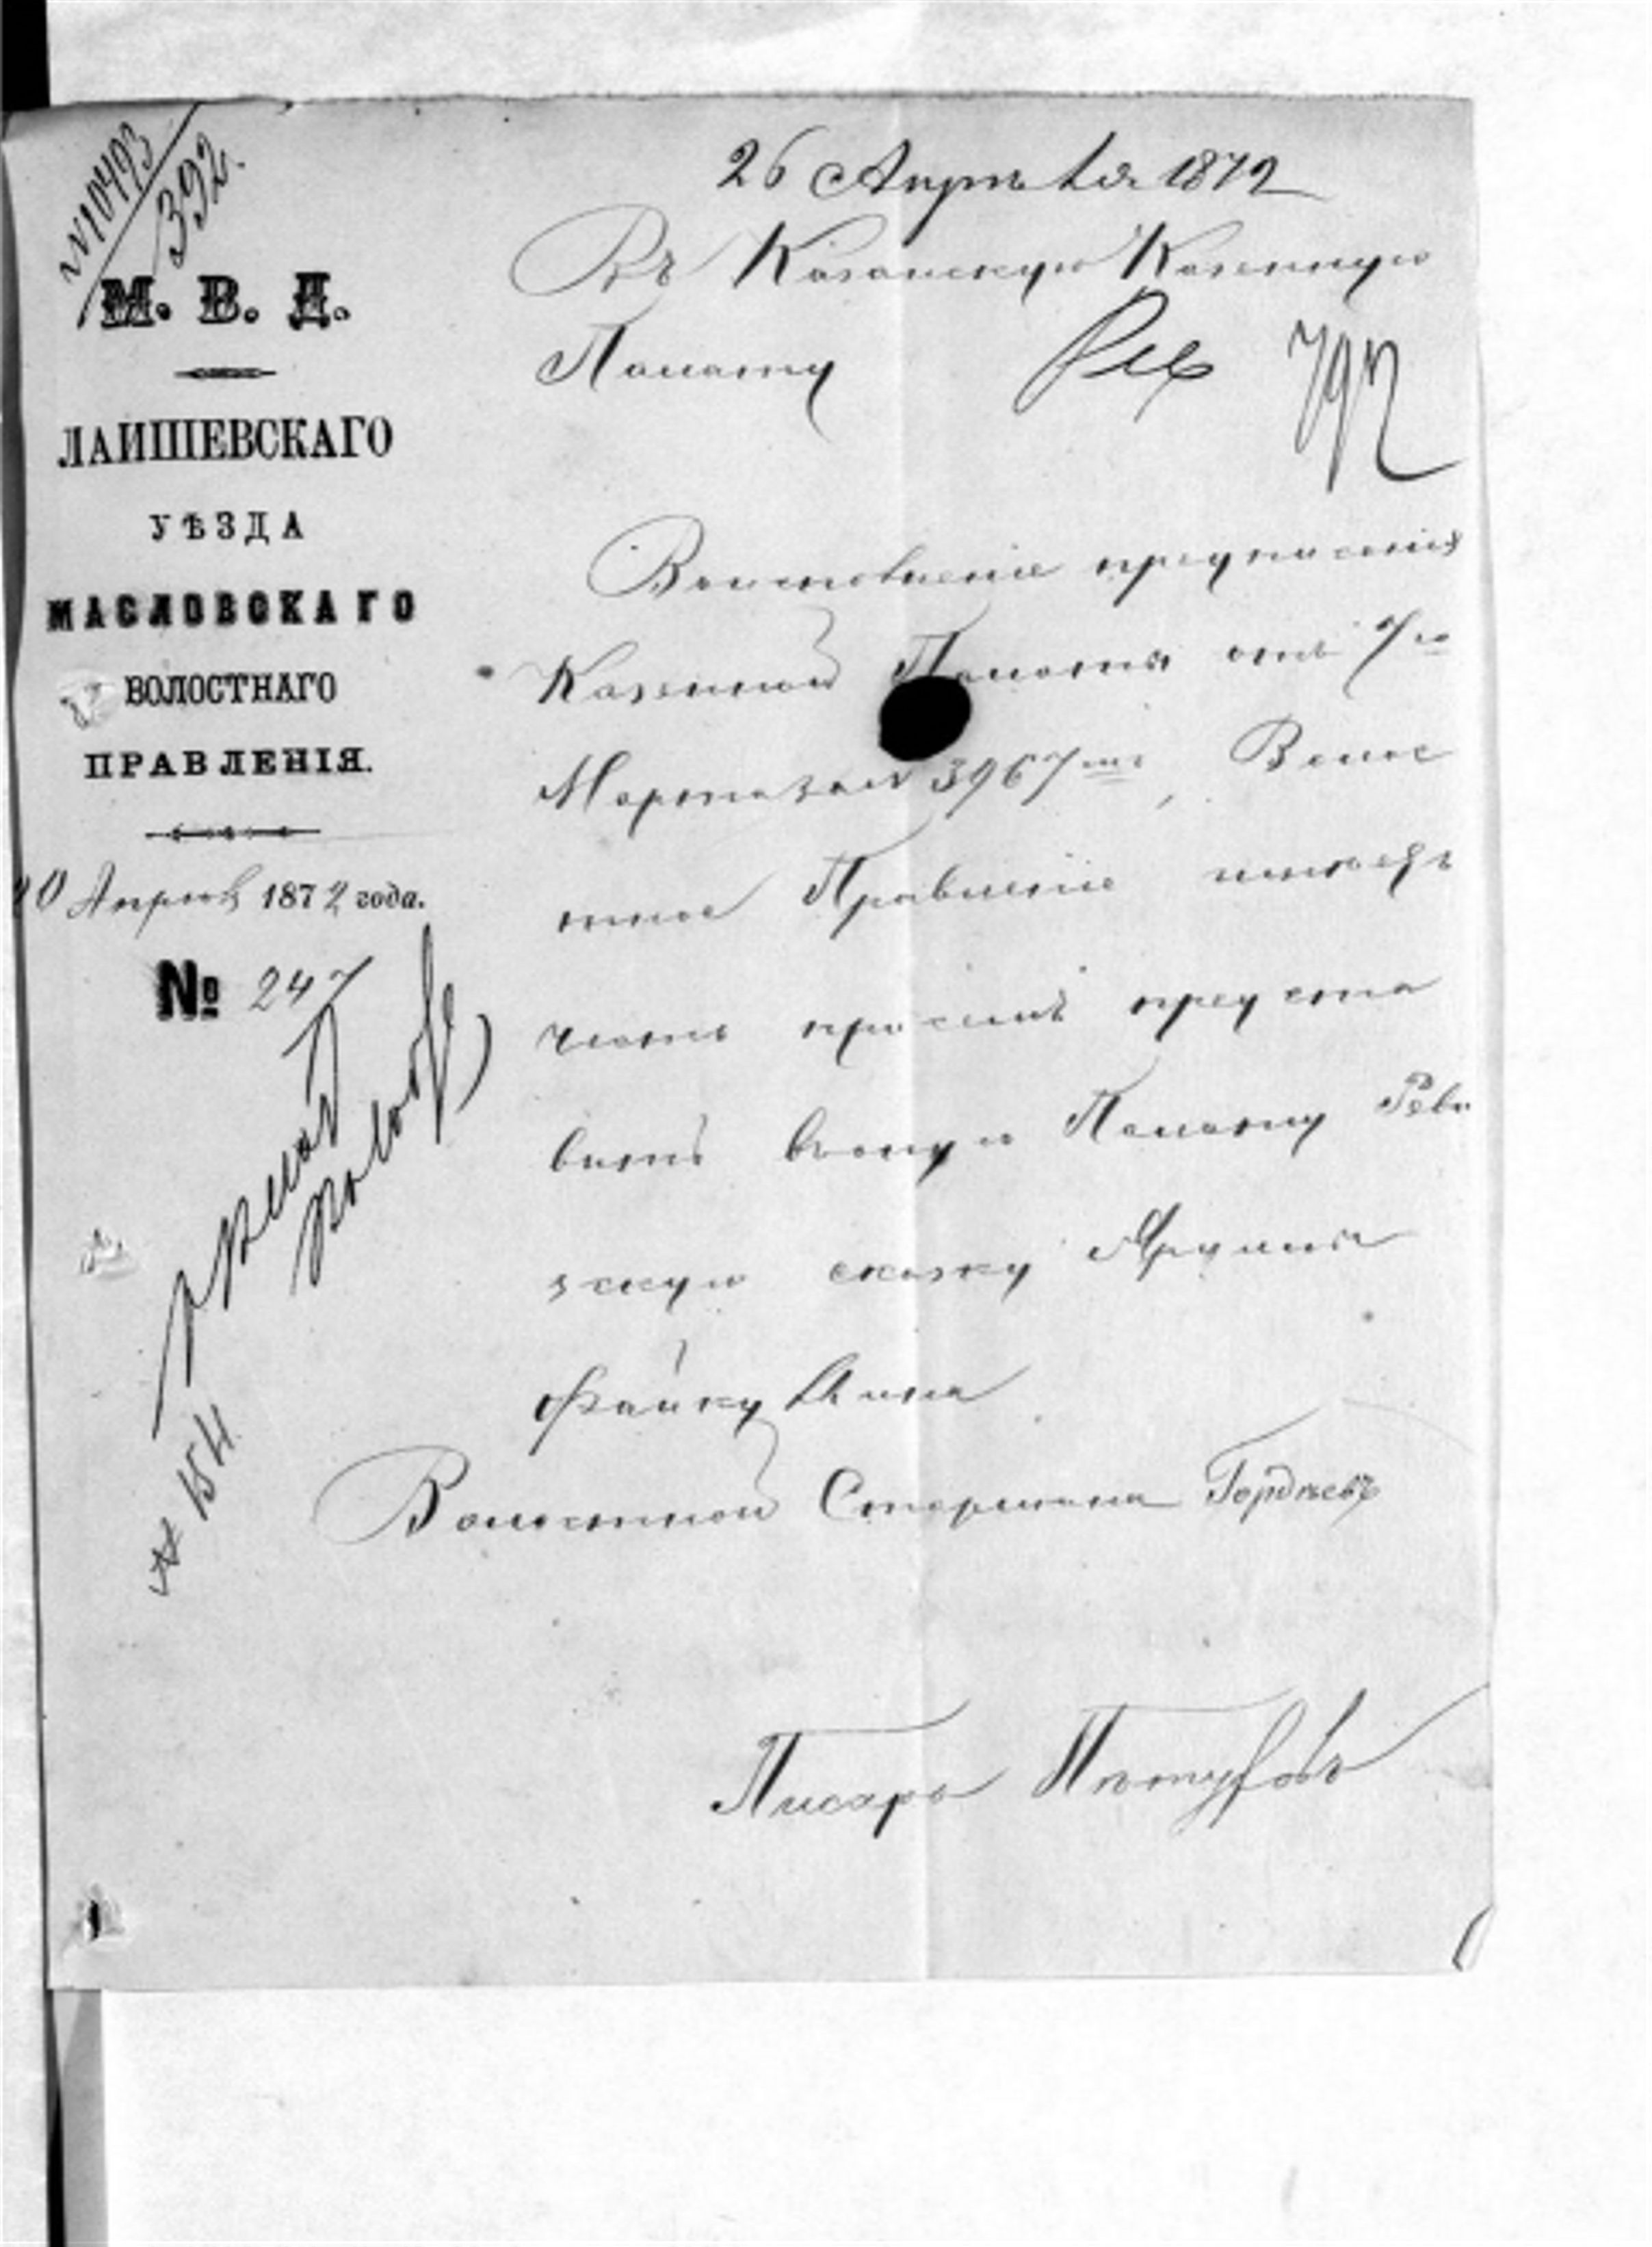 № 10493
392.
М. В. Д.
ЛАИШЕВСКАГО
УѢЗДА
МАСЛОВСКАГО
ВОЛОСТНАГО
ПРАВЛЕНІЯ.
Апрѣля 1872 года.
№ 247
№ 154
26 Апрѣля 1872
Въ Казанскую Казенную
Палату
792
предписанія
Казенной Палаты отъ 7го
Марта за № 3967мъ, Волос
тное Правленіе имѣетъ
честь предста
вить въ оную Палату Реви
зскую сказку
Волостной Старшина Гордѣевъ
Писарь Пѣтуховъ